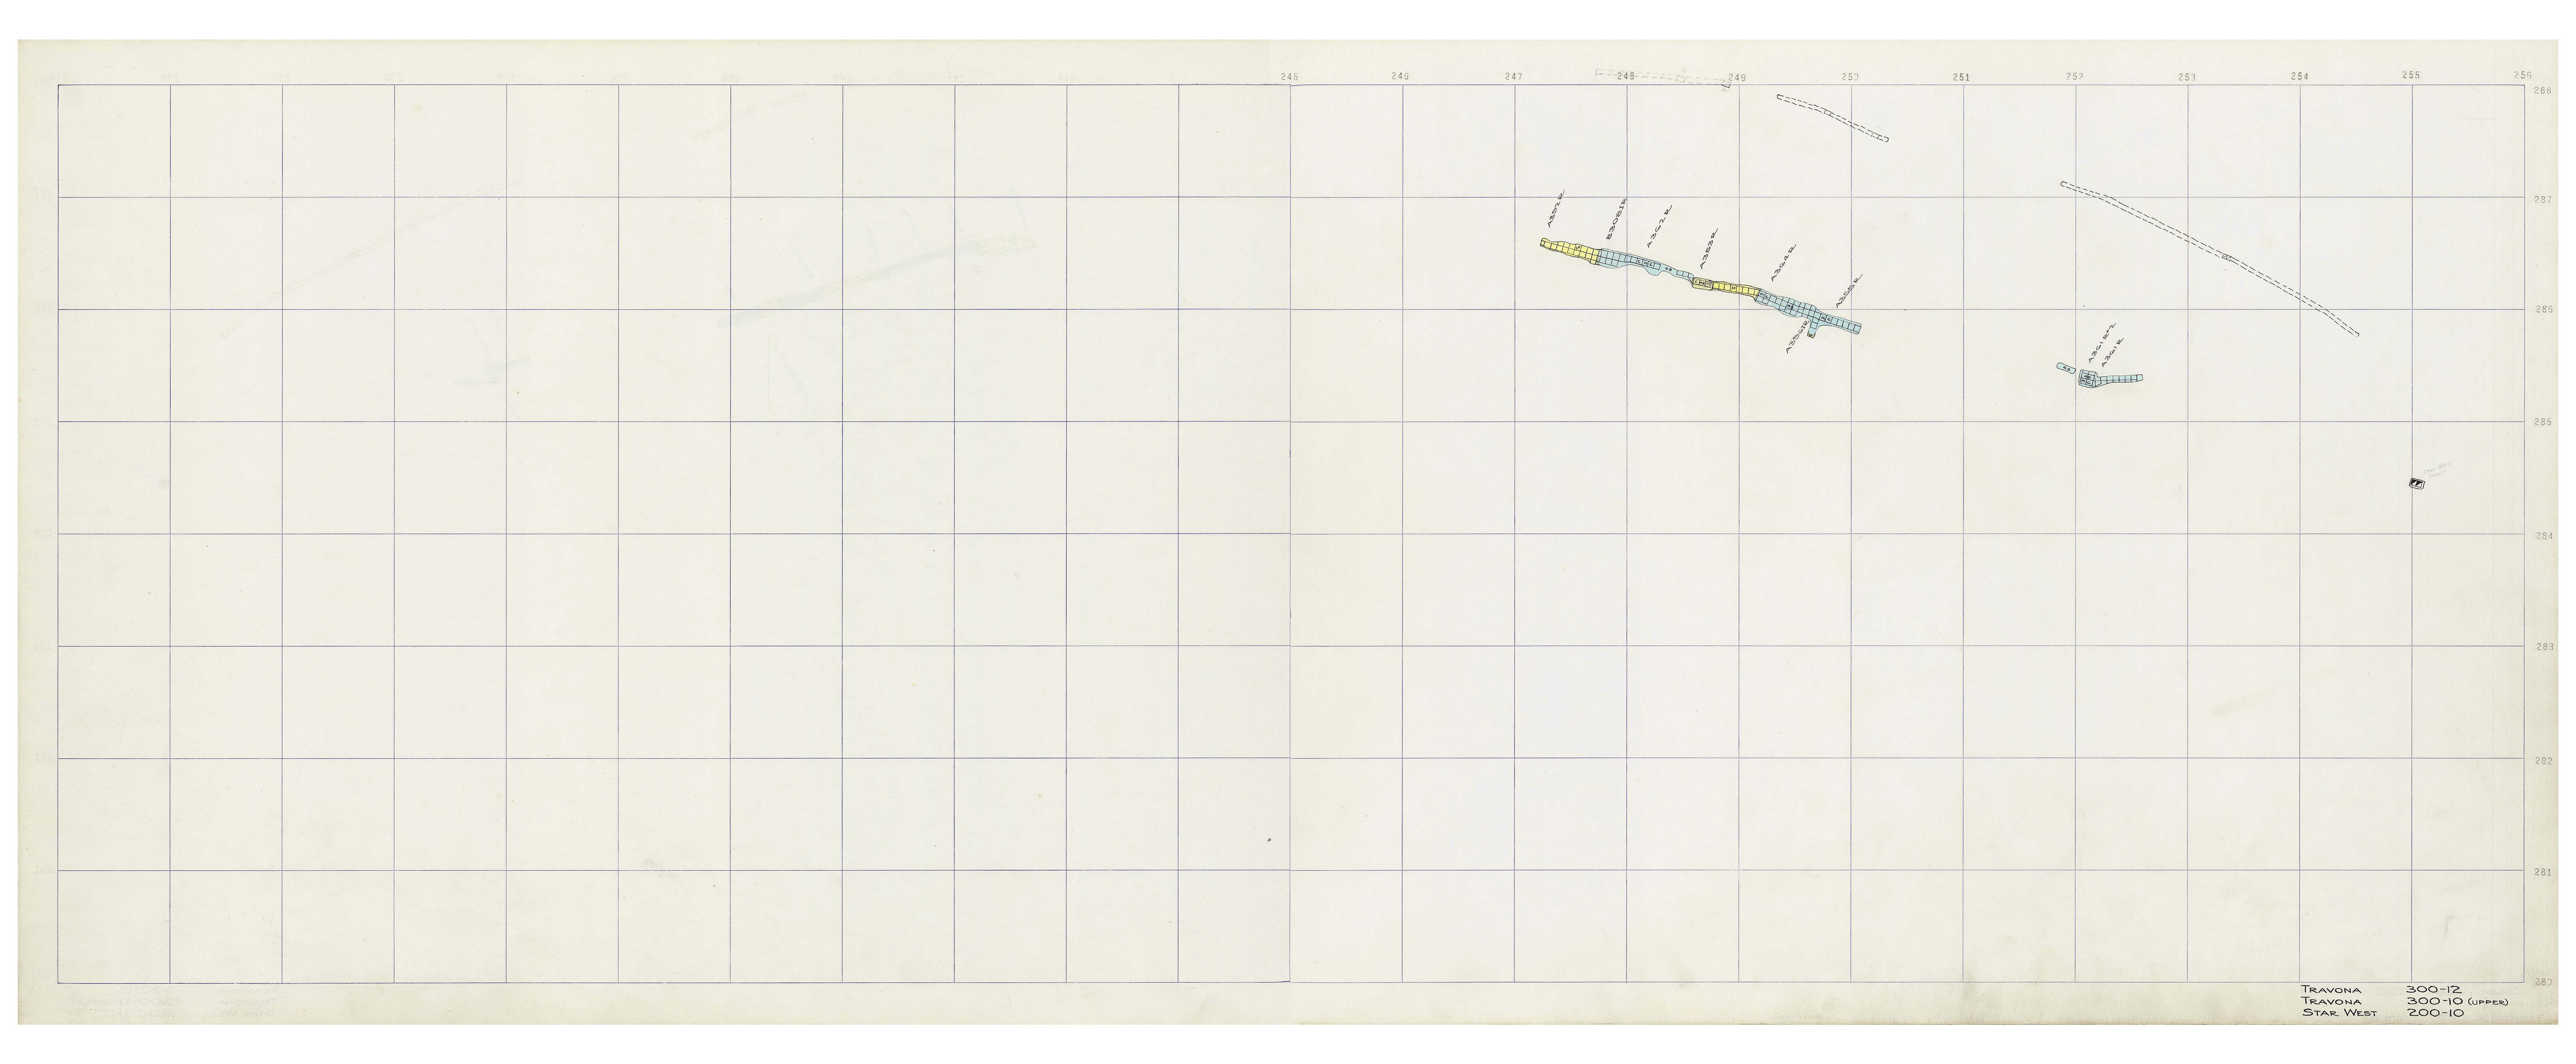 245 246 247 248 249 250 251 252 253 254 255 256
288
287
286
285
284
283
282
281
280
A352R
A362R
A353R
A364R
A355R
A361R-2
A361R
TRAVONA 300-12
TRAVONA 300-10 (UPPER)
STAR WEST 200-10